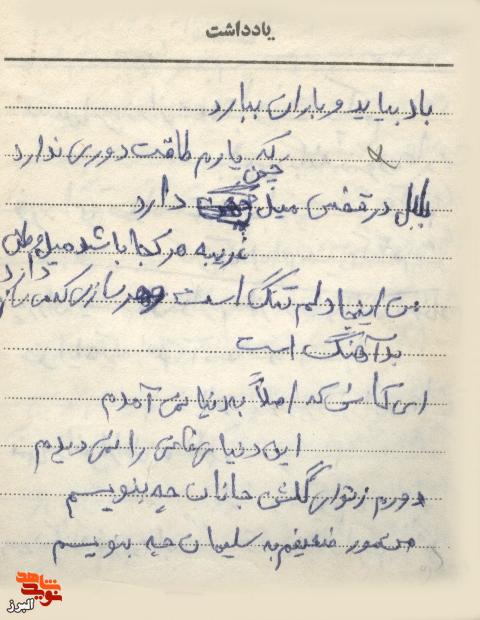 یادداشت
باد بیاید و باران ببارد
که یارم طاقت دوری ندارد
چمن
بلبل در قفس میل دارد
غریبه هر کجا باشد میل وطن
دارد
من اینجا دلم تنگ است هر سازی که می‌زنم
بدآهنگ است
ای کاش که اصلاً به دنیا نمی‌آمدم
این دنیای فانی را نمی‌دیدم
دورم ز تو ای گلشن جانان چه بنویسم
من مور ضعیفم به سلیمان چه بنویسم
نوید شاهد
البرز